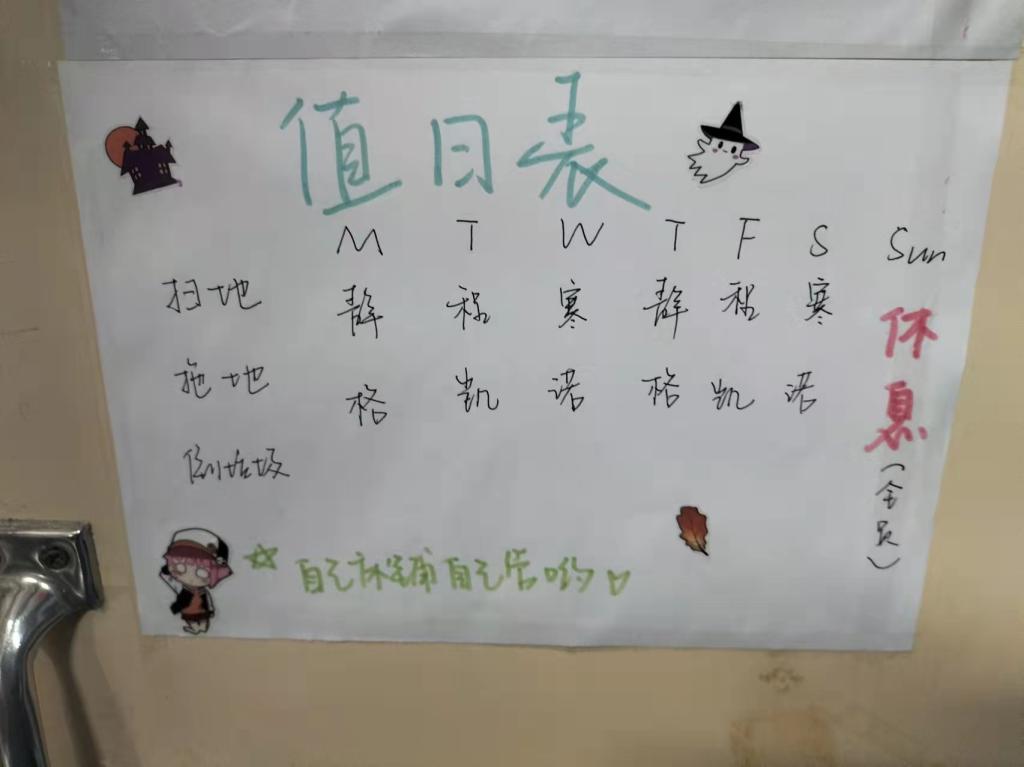 值日表
M T W T F S Sun
扫地 静 程 寒 静 程 寒
拖地 格 凯 诺 格 凯 诺
倒垃圾
休息
(全员)
☆ 自己床铺自己管哟♡